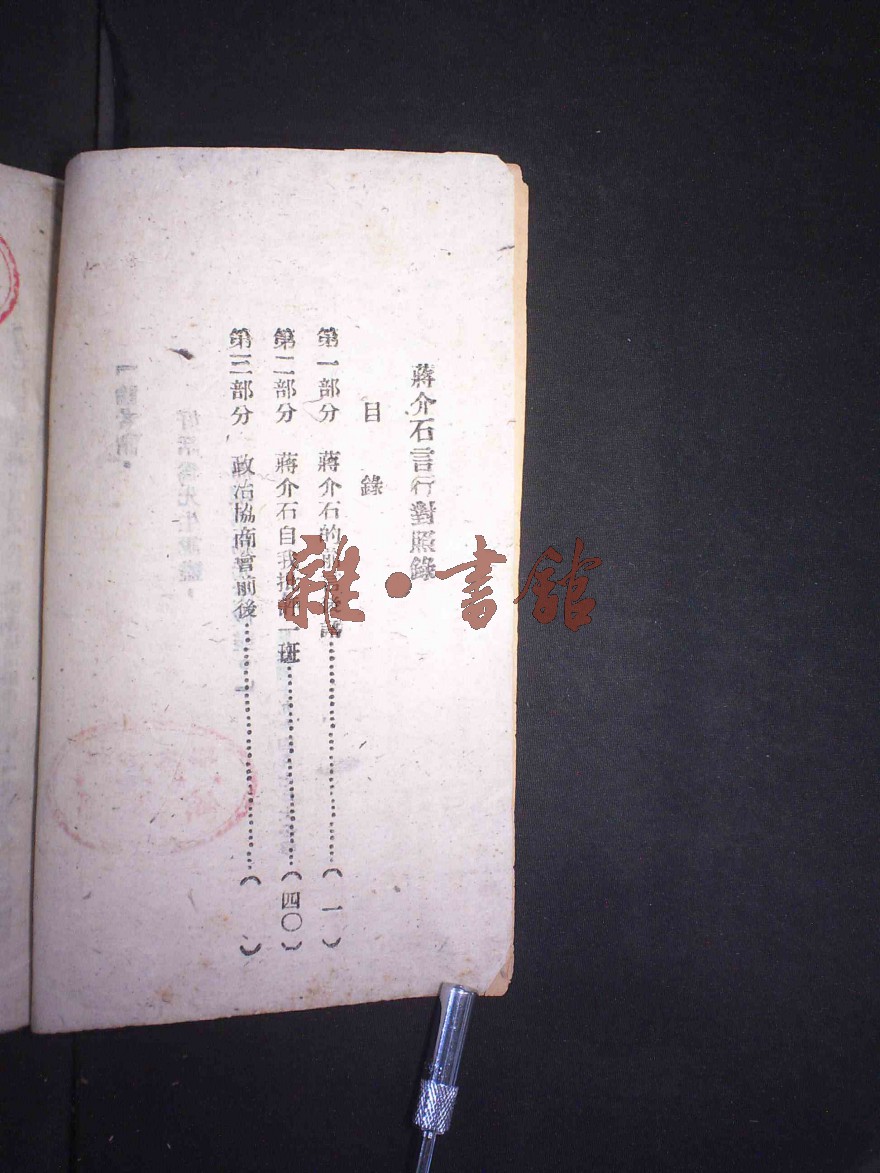 蔣介石言行對照錄
目錄
第一部分 蔣介石的 ( 一 )
第二部分 蔣介石自我 一斑 (四〇)
第三部分 政治協商會前後 ( )
雜·書館